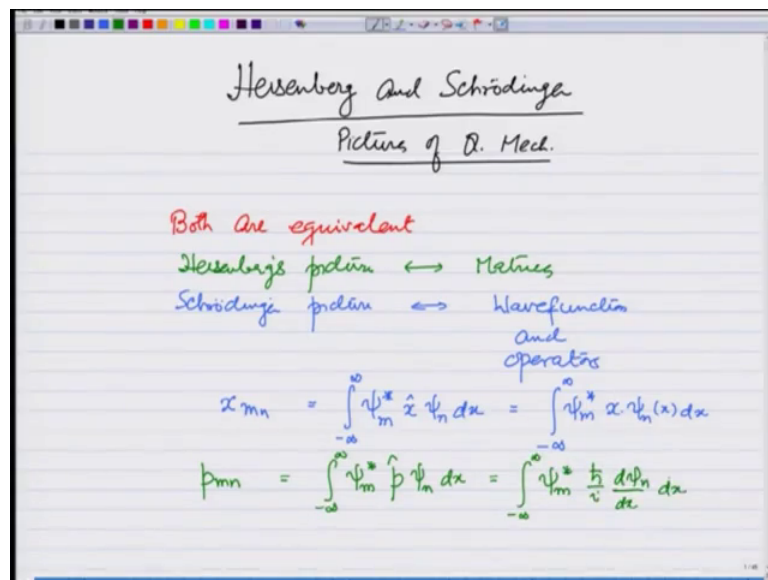 Heisenberg and Schrödinger
Picture of Q. Mech.
Both are equivalent
Heisenberg's picture ⟷ Matrices
Schrödinger picture ⟷ Wavefunction
and
operators
x_{mn} = ∫_{-∞}^{∞} ψ_m^* x̂ ψ_n dx = ∫_{-∞}^{∞} ψ_m^* x·ψ_n(x) dx
p_{mn} = ∫_{-∞}^{∞} ψ_m^* p̂ ψ_n dx = ∫_{-∞}^{∞} ψ_m^* ħ/i dψ_n/dx dx